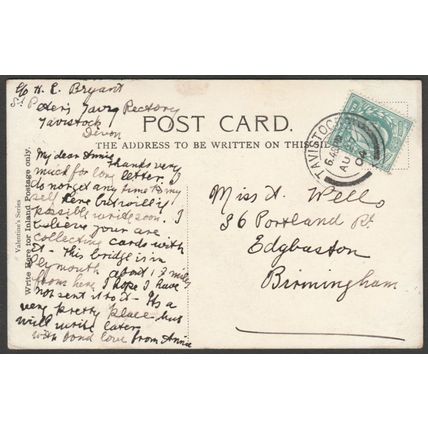 c/o H. C. Bryant
St Peter's Tavy Rectory
Tavistock
Devon
POST CARD.
THE ADDRESS TO BE WRITTEN ON THIS SIDE
Valentine's Series
Write Here for Inland Postage only.
My dear Annie
thanks very
much for long letter. I
do not get any time to my
self here but will if
possible write soon. I
believe your are
collecting cards with
it - this bridge is in
Plymouth about 12 miles
from here I hope I have
not sent it to it - Its a
very pretty place but
will write later
with fond love from Annie
TAVISTOCK
AU
Miss H. Wells
36 Portland Rd
Edgbaston
Birmingham